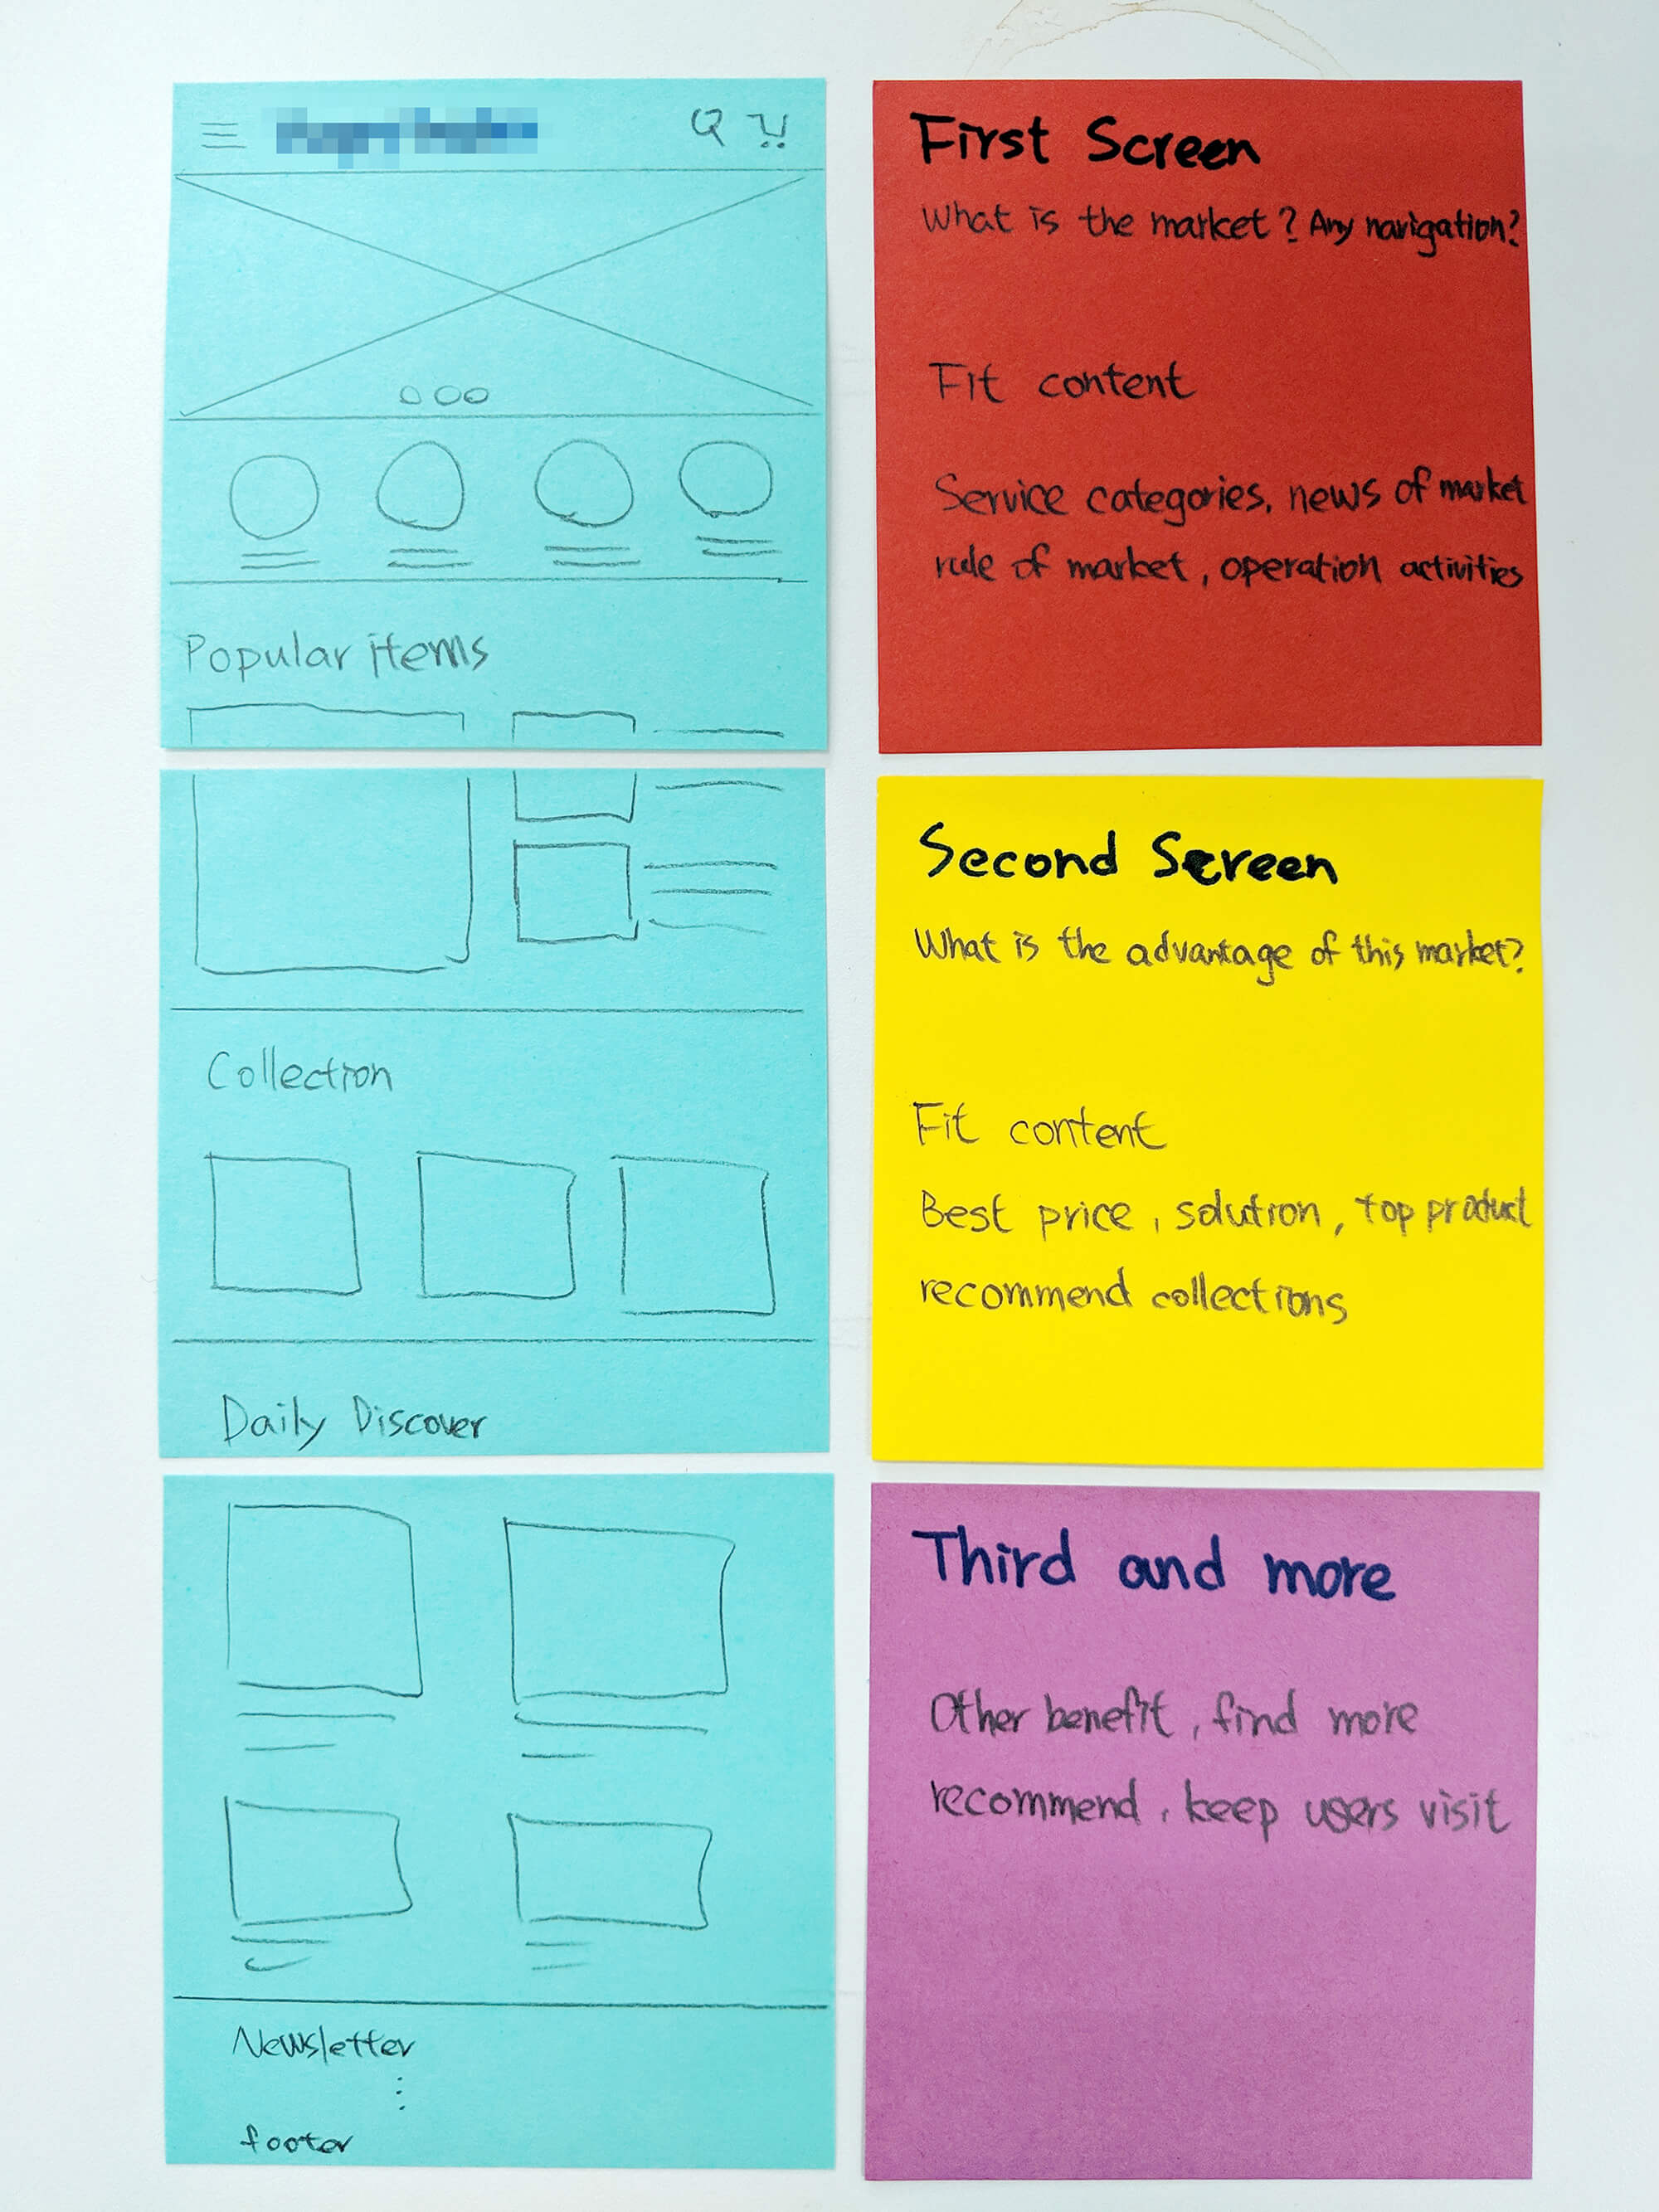 Popular items
Collection
Daily Discover
Newsletter
footer
First Screen
What is the market? Any navigation?
Fit content
Service categories, news of market
rule of market, operation activities
Second Screen
What is the advantage of this market?
Fit content
Best price, solution, top product
recommend collections
Third and more
Other benefit, find more
recommend, keep users visit